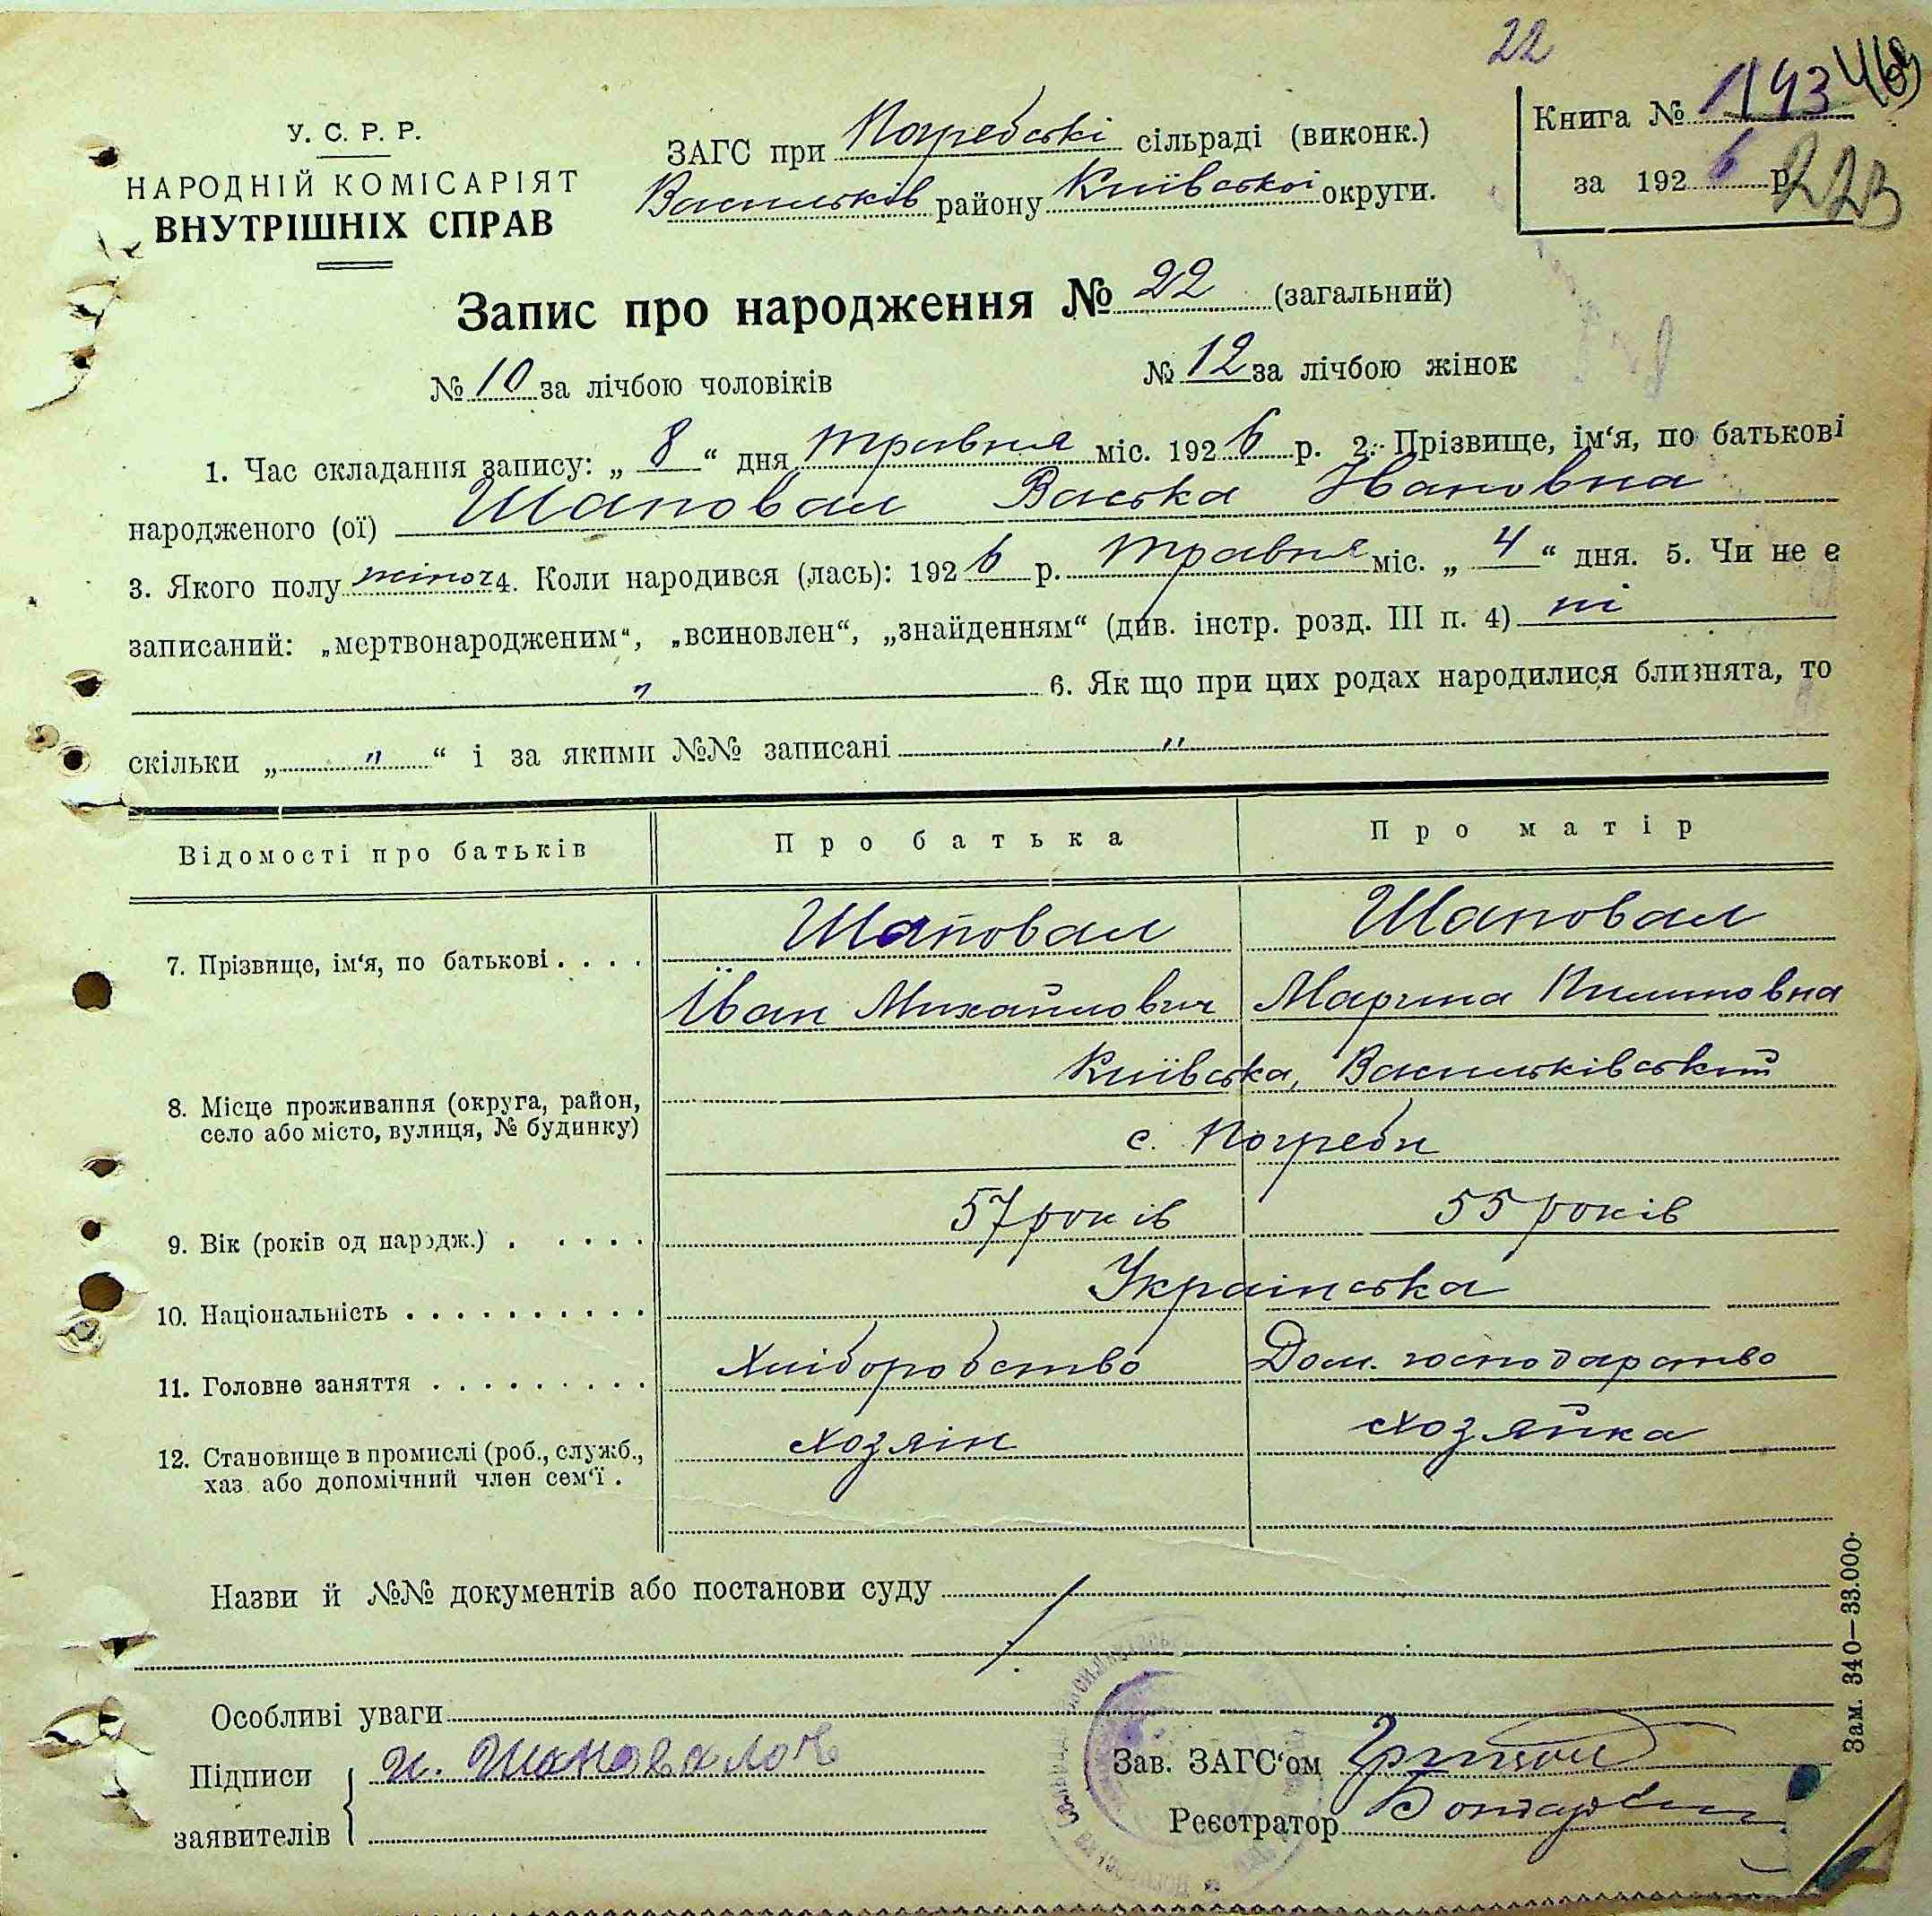 22
У. С. Р. Р.
НАРОДНІЙ КОМІСАРІЯТ
ВНУТРІШНІХ СПРАВ
ЗАГС при Погребські сільраді (виконк.)
Васильків району Київської округи.
Книга № 1193
за 1926 р.
223
Запис про народження № 22 (загальний)
№ 10 за лічбою чоловіків № 12 за лічбою жінок
1. Час складання запису: „ 8 “ дня травня міс. 1926 р. 2. Прізвище, ім‘я, по батькові
народженого (ої) Шаповал Васька Івановна
3. Якого полу жіноч 4. Коли народився (лась): 1926 р. травня міс. „ 4 “ дня. 5. Чи не є
записаний: „мертвонародженим“, „всиновлен“, „знайденням“ (див. інстр. розд. III п. 4) ні
6. Як що при цих родах народилися близнята, то
скільки „ " “ і за якими №№ записані "
Відомості про батьків Про батька Про матір
7. Прізвище, ім‘я, по батькові . . . . Шаповал Шаповал
Іван Михайлович Марина Пилиповна
8. Місце проживання (округа, район, Київська, Васильківський
село або місто, вулиця, № будинку) с. Погреби
9. Вік (років од народж.) . . . . . 57 років 55 років
10. Національність . . . . . . . . . . Українська
11. Головне заняття . . . . . . . . . Хліборобство Дом. господарство
12. Становище в промислі (роб., служб., хозяін хозяйка
хаз. або допомічний член сем‘ї .
Назви й №№ документів або постанови суду
Особливі уваги
Підписи И. Шаповалов
заявителів
Зав. ЗАГС‘ом
Реєстратор
Зам. 340—33.000.